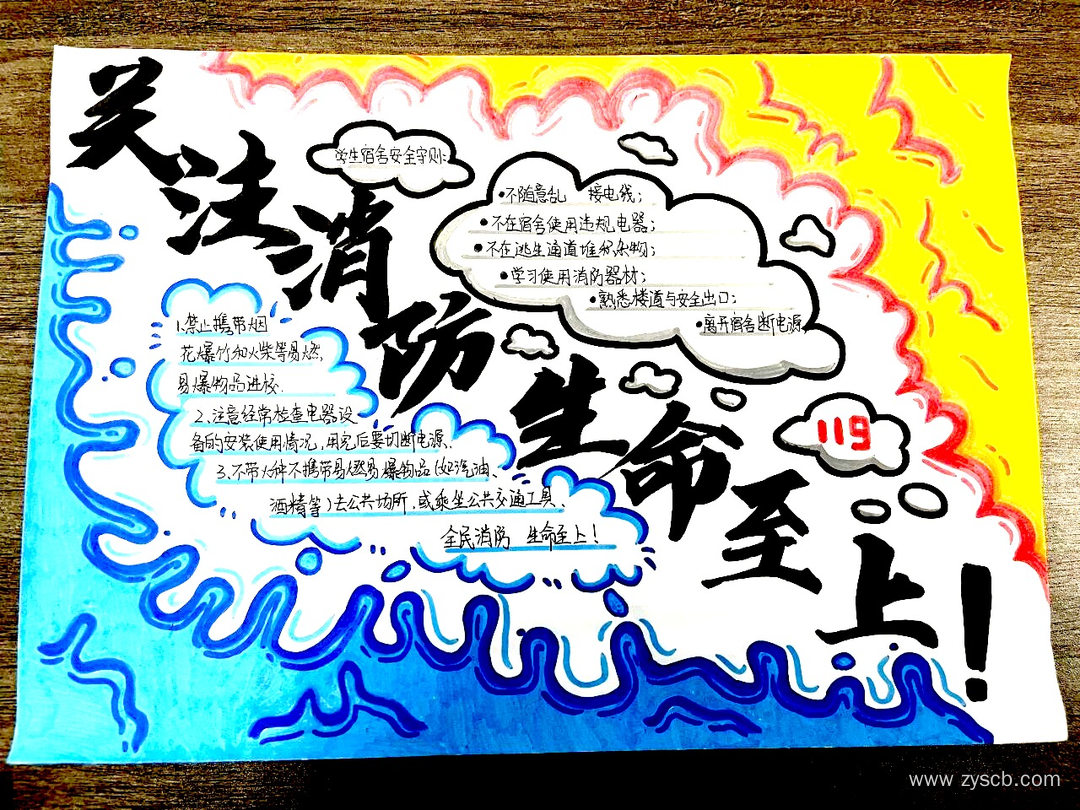 关注消防生命至上！
学生宿舍安全守则：
•不随意乱 接电线；
•不在宿舍使用违规电器；
•不在逃生通道堆积杂物；
•学习使用消防器材；
•熟悉楼道与安全出口；
•离开宿舍断电源
119
1.禁止携带烟
花爆竹和火柴等易燃、
易爆物品进校.
2.注意经常检查电器设
备的安装使用情况，用完后要切断电源、
3.不带火种不携带易燃易爆物品（如汽油、
酒精等）去公共场所，或乘坐公共交通工具、
全民消防 生命至上！
www.zyscb.com